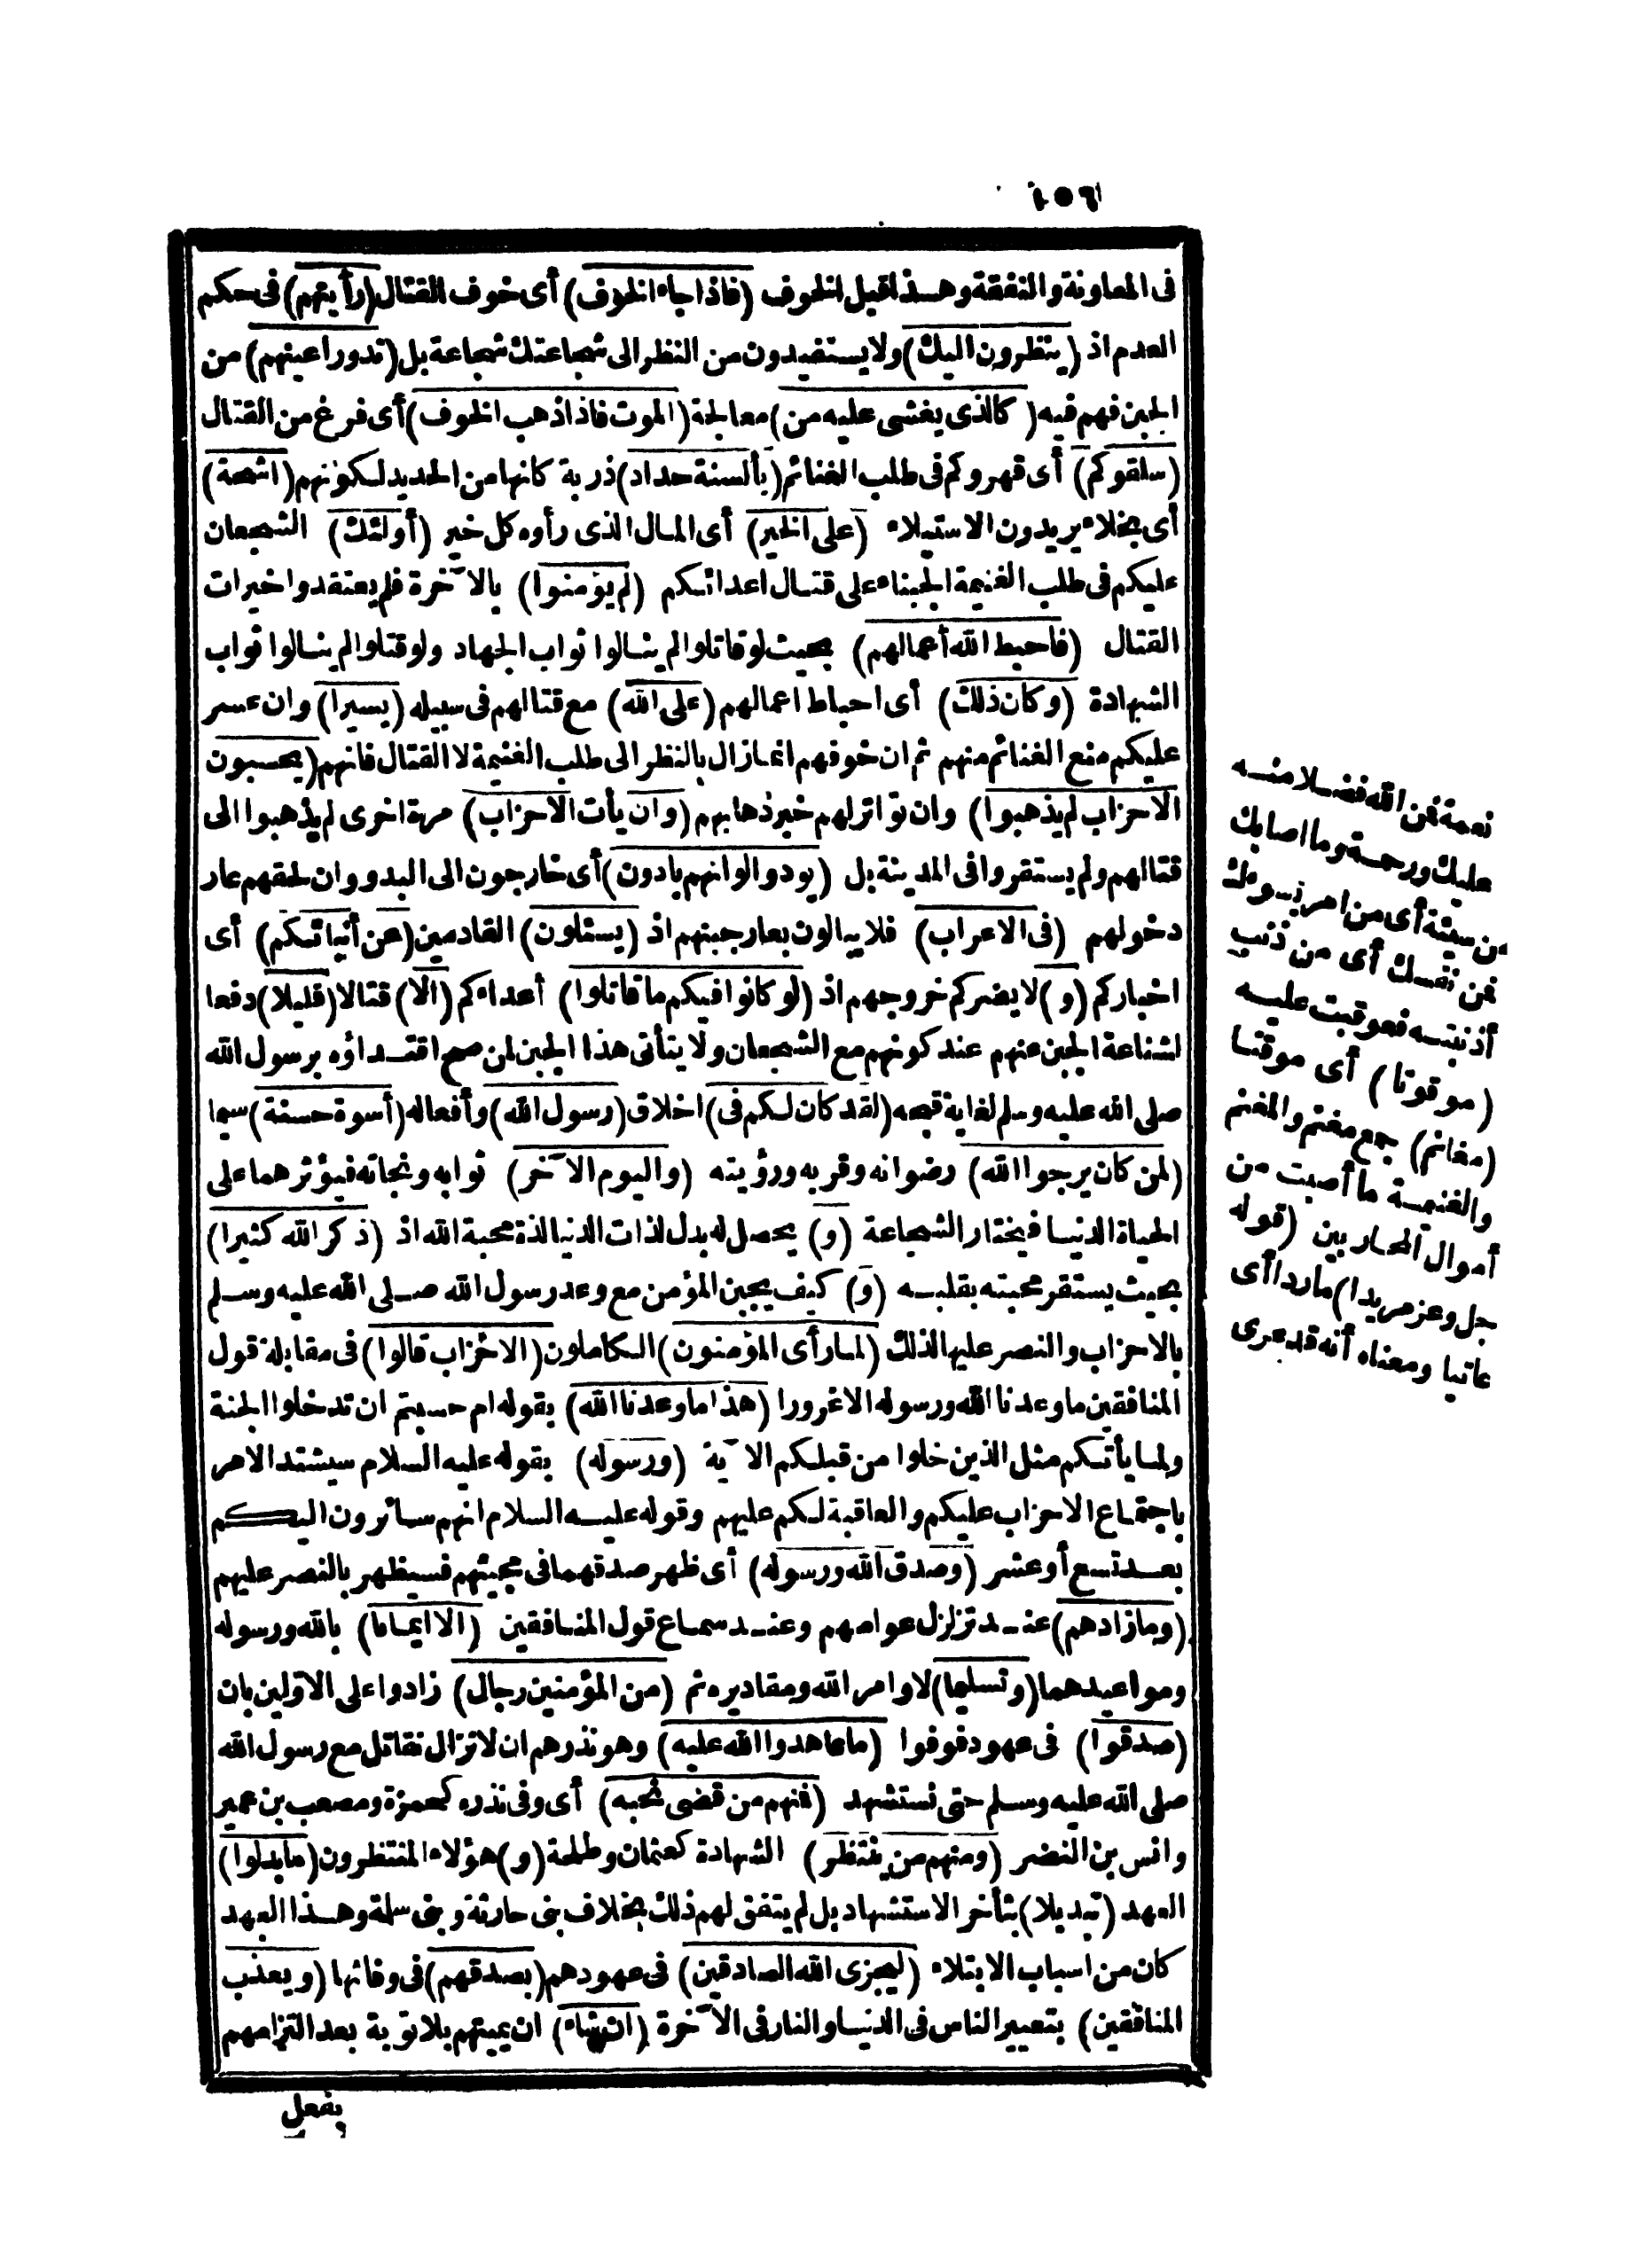 ١٥٦
فى المعاونة والنفقة وهذا قبل الخوف (فاذا جاء الخوف) أى خوف القتال (رأيتهم) فى حكم
العدم اذ (ينظرون اليك) ولا يستفيدون من النظر الى شجاعتك شجاعة بل (تدور اعينهم) من
الجبن فهم فيه (كالذى يغشى عليه من) معالجة (الموت فاذا ذهب الخوف) أى فرغ من القتال
(سلقوكم) أى قهروكم فى طلب الغنائم (بألسنة حداد) ذربة كانها من الحديد لكونهم (اشحة)
أى بخلاء يريدون الاستيلاء (على الخير) أى المال الذى رأوه كل خير (أولئك) الشجعان
عليكم فى طلب الغنيمة الجبناء على قتال اعدائكم (لم يؤمنوا) بالآخرة فلم يعتقدوا خيرات
القتال (فاحبط الله أعمالهم) بحيث لو قاتلوا لم ينالوا ثواب الجهاد ولو قتلوا لم ينالوا ثواب
الشهادة (وكان ذلك) أى احباط اعمالهم (على الله) مع قتالهم فى سبيله (يسيرا) وان عسر
عليكم منع الغنائم منهم ثم ان خوفهم انما زال بالنظر الى طلب الغنيمة لا القتال فانهم (يحسبون
الاحزاب لم يذهبوا) وان تواتر لهم خبر ذهابهم (وان يأت الاحزاب) مرة اخرى لم يذهبوا الى
قتالهم ولم يستقروا فى المدينة بل (يودوا لو انهم بادون) أى خارجون الى البدو وان لحقهم عار
دخولهم (فى الاعراب) فلا يبالون بعار جبنهم اذ (يسئلون) القادمين (عن أنبائكم) أى
اخباركم (و) لا يضركم خروجهم اذ (لو كانوا فيكم ما قاتلوا) أعداءكم (الا) قتالا (قليلا) دفعا
لشناعة الجبن عنهم عند كونهم مع الشجعان ولا يتأتى هذا الجبن لمن صح اقتداؤه برسول الله
صلى الله عليه وسلم لغاية قبحه (لقد كان لكم فى) اخلاق (رسول الله) وأفعاله (أسوة حسنة) سيما
(لمن كان يرجوا الله) رضوانه وقربه ورؤيته (واليوم الآخر) ثوابه ونجاته فيؤثرهما على
الحياة الدنيا فيختار الشجاعة (و) يحصل له بدل لذات الدنيا لذة محبة الله اذ (ذكر الله كثيرا)
بحيث يستقر محبته بقلبه (و) كيف يجبن المؤمن مع وعد رسول الله صلى الله عليه وسلم
بالاحزاب والنصر عليها لذلك (لما رأى المؤمنون) الكاملون (الاحزاب قالوا) فى مقابلة قول
المنافقين ما وعدنا الله ورسوله الا غرورا (هذا ما وعدنا الله) بقوله ام حسبتم ان تدخلوا الجنة
ولما يأتكم مثل الذين خلوا من قبلكم الآية (ورسوله) بقوله عليه السلام سيشتد الامر
باجتماع الاحزاب عليكم والعاقبة لكم عليهم وقوله عليه السلام انهم سائرون اليكم
بعد تسع أو عشر (وصدق الله ورسوله) أى ظهر صدقهما فى مجيئهم فسيظهر بالنصر عليهم
(وما زادهم) عند تزلزل عوامهم وعند سماع قول المنافقين (الا ايمانا) بالله ورسوله
ومواعيدهما (وتسليما) لاوامر الله ومقاديره ثم (من المؤمنين رجال) زادوا على الاولين بان
(صدقوا) فى عهود فوفوا (ما عاهدوا الله عليه) وهو نذرهم ان لا نزال نقاتل مع رسول الله
صلى الله عليه وسلم حتى نستشهد (فمنهم من قضى نحبه) أى وفى نذره كحمزة ومصعب بن عمير
وانس بن النضر (ومنهم من ينتظر) الشهادة كعثمان وطلحة (و) هؤلاء المنتظرون (ما بدلوا)
العهد (تبديلا) بتأخر الاستشهاد بل لم يتفق لهم ذلك بخلاف بنى حارثة وبنى سلمة وهذا العهد
كان من اسباب الابتلاء (ليجزى الله الصادقين) فى عهودهم (بصدقهم) فى وفائها (ويعذب
المنافقين) بتعيير الناس فى الدنيا والنار فى الآخرة (ان شاء) ان يميتهم بلا توبة بعد التزامهم
بفعل
نعمة فمن الله فضلا منه
عليك ورحمة وما اصابك
من سيئة أى من امر يسوءك
فمن نفسك أى من ذنب
أذنبته فعوقبت عليه
(موقوتا) أى موقتا
(مغانم) جمع مغنم والمغنم
والغنيمة ما أصبت من
أموال المحاربين (قوله
جل وعز مريدا) ماردا أى
عاتيا ومعناه أنه قد عرى